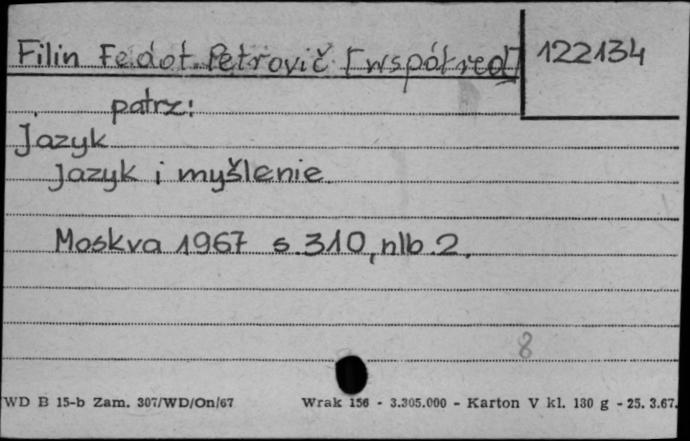 Filin Fedot Petrovič [współred] 122134
patrz:
Język
Jazyk i myšlenie
Moskva 1967 s.310, nlb.2.
8
WD B 15-b Zam. 307/WD/On/67 Wrak 156 - 3.305.000 - Karton V kl. 130 g - 25. 3.67.